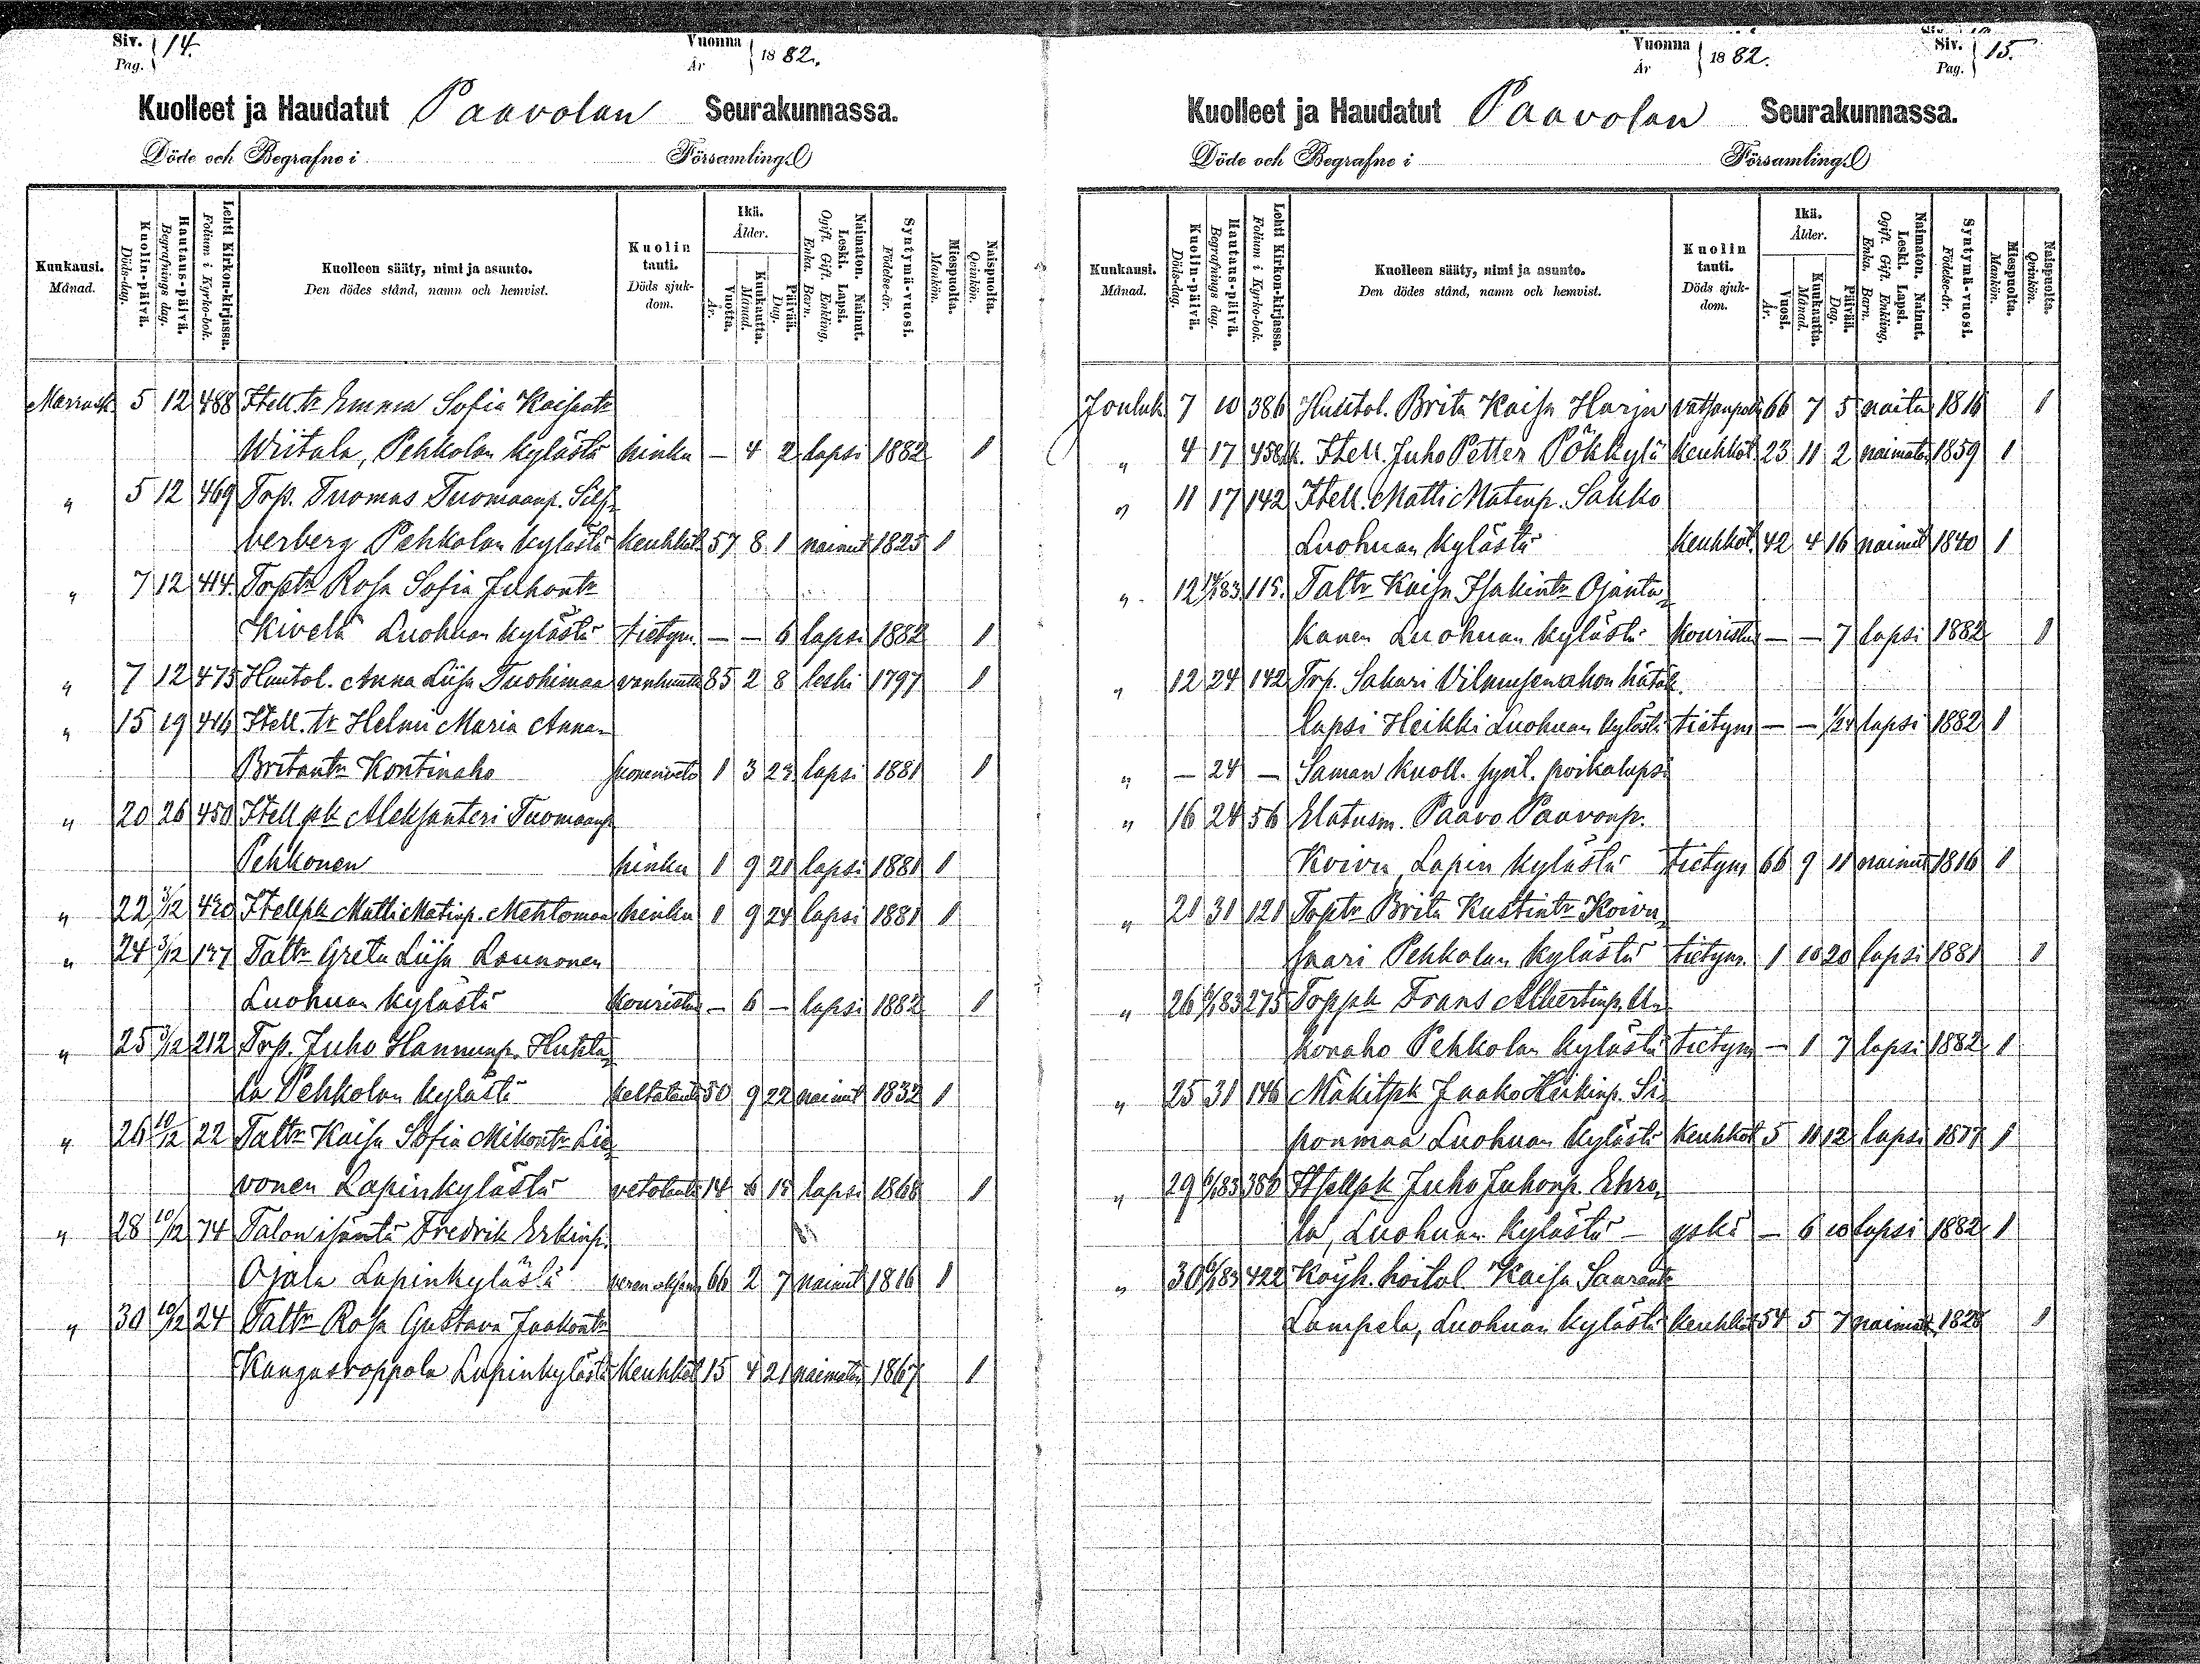 Siv. 14.
Pag.
Vuonna 1882.
År
Kuolleet ja Haudatut Paavolan Seurakunnassa.
Döde och Begrafne i Församling.
Kuukausi. Månad.
Kuolin-päivä. Döds-dag.
Hautaus-päivä. Begrafnings dag.
Lehti Kirkon-kirjassa. Folium i Kyrko-bok.
Kuolleen sääty, nimi ja asunto.
Den dödes stånd, namn och hemvist.
Kuolin tauti. Döds sjukdom.
Ikä. Ålder.
Vuotta. År.
Kuukautta. Månad.
Päivää. Dag.
Naimaton. Nainut. Leski. Lapsi.
Ogift. Gift. Enkling, Enka. Barn.
Syntymä-vuosi. Födelse-år.
Miespuolta. Mankön.
Naispuolta. Qvinkön.
Marrask. 5 12 488 Itell. tr Emma Sofia Kaisantr
Wiitala, Pehkolan kylästä hinku – 4 2 lapsi 1882 1
" 5 12 469 Torp. Tuomas Tuomaanp. Silf-
verberg Pehkolan kylästä keuhkot. 57 8 1 nainut 1825 1
" 7 12 414. Torptr Rosa Sofia Juhontr
Kivelä Luohuan kylästä tietym. – – 6 lapsi 1882 1
" 7 12 475 Huutol. Anna Liisa Tuohimaa vanhuutta 85 2 8 leski 1797 1
" 15 19 416 Itell. tr Helmi Maria Anna-
Britantr Kontinaho suonenveto 1 3 23 lapsi 1881 1
" 20 26 450 Itell pk Aleksanteri Tuomaanp
Pehkonen hinku 1 9 21 lapsi 1881 1
" 22 3/12 420 Itellpk Matti Matinp. Mehtomaa hinku 1 9 24 lapsi 1881 1
" 24 3/12 137 Taltr Greta Liisa Lounonen
Luohuan kylästä kouristus – 6 – lapsi 1882 1
" 25 3/12 212 Torp. Juho Hannunp. Huhta-
la Pehkolan kylästä keltatauti 50 9 22 nainut 1832 1
" 26 10/12 22 Taltr Kaisa Sofia Mikontr Lie-
vonen Lapinkylästä vetotauti 14 6 15 lapsi 1868 1
" 28 10/12 74 Talon isäntä Fredrik Erkinp.
Ojala Lapinkylästä 66 2 7 nainut 1816 1
" 30 10/12 24 Taltr Rosa Gustava Jaakontr
Kangasroppola Lapinkylästä keuhkot 15 4 21 naimaton 1867 1
Vuonna 1882. Siv. 15.
År Pag.
Kuolleet ja Haudatut Paavolan Seurakunnassa.
Döde och Begrafne i Församling.
Kuukausi. Månad.
Kuolin-päivä. Döds-dag.
Hautaus-päivä. Begrafnings dag.
Lehti Kirkon-kirjassa. Folium i Kyrko-bok.
Kuolleen sääty, nimi ja asunto.
Den dödes stånd, namn och hemvist.
Kuolin tauti. Döds sjukdom.
Ikä. Ålder.
Vuosi. År.
Kuukautta. Månad.
Päivää. Dag.
Naimaton. Nainut. Leski. Lapsi.
Ogift. Gift. Enkling, Enka. Barn.
Syntymä-vuosi. Födelse-år.
Miespuolta. Mankön.
Naispuolta. Qvinkön.
Jouluk. 7 10 386 Huutol. Brita Kaisa Harju 66 7 5 naitu 1816 1
" 4 17 458 Itell. Juho Petter Pökkylä keuhkot. 23 11 2 naimaton 1859 1
" 11 17 142 Itell. Matti Matinp. Sakko
Luohuan kylästä keuhkot. 42 4 16 nainut 1840 1
" 12 115. Taltr Kaisa Isakintr Ojanta-
kanen Luohuan kylästä kouristus – – 7 lapsi 1882 1
" 12 24 142 Trp. Sakari Vilmusenahon hätäk.
lapsi Heikki Luohuan kylästä tietym – – 1/24 lapsi 1882 1
" – 24 – Saman kuoll. synt. poikalapsi
" 16 24 56 Elatusm. Paavo Paavonp.
Koivu, Lapin kylästä tietym 66 9 11 nainut 1816 1
" 21 31 121 Toptr Brita Kustintr Koivu-
saari Pehkolan kylästä tietym. 1 10 20 lapsi 1881 1
" 26 6/1 83 275 Toppk Frans Albertinp. U-
konaho Pehkolan kylästä tietym – 1 7 lapsi 1882 1
" 25 31 146 Mäkitpk Jaako Heikinp. Si-
ponmaa Luohuan kylästä keuhkot 5 11 12 lapsi 1877 1
" 29 6/1 83 380 Itsellpk Juho Juhonp. Ehro-
la, Luohuan kylästä – yskä – 6 10 lapsi 1882 1
" 30 6/1 83 422 Köyh. hoitol Kaisa Saarantr
Lampela, Luohuan kylästä keuhkot 54 5 7 naimat. 1828 1